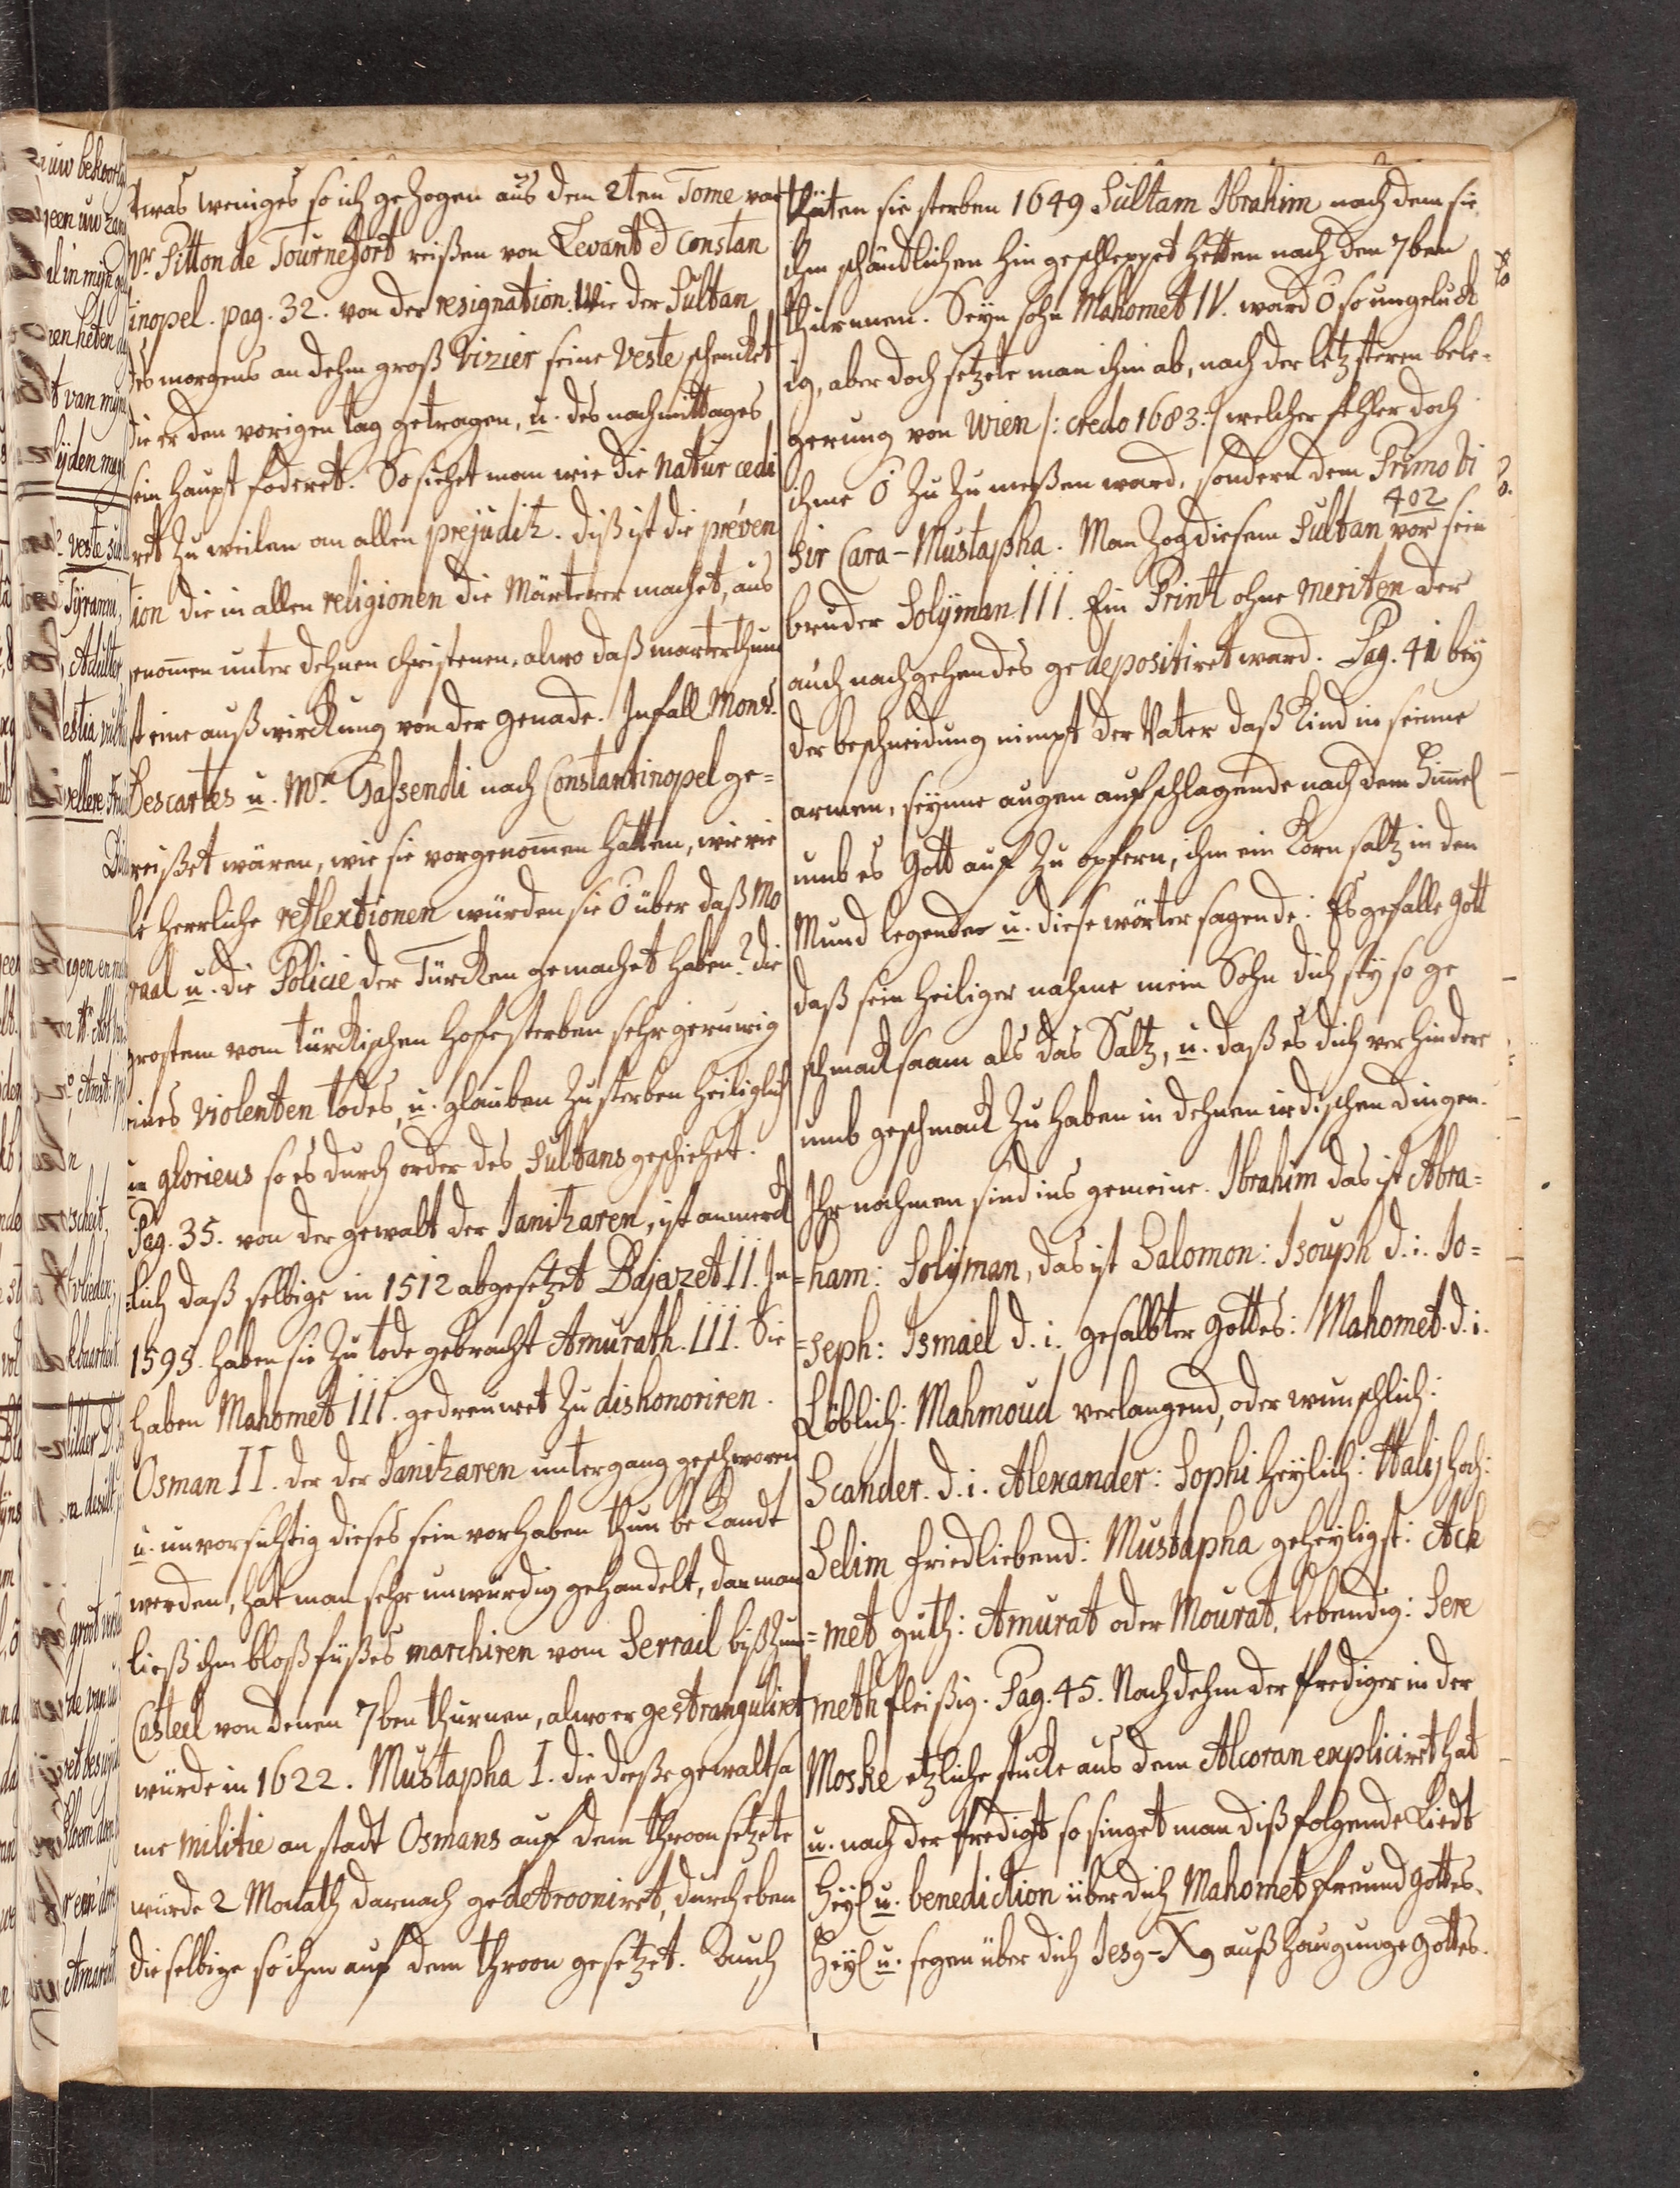 twas weniges so ich gezogen aus dem 2ten Tome von
Mr. Pitton de Tournefort reißen von Levant & Constan
inopel. pag. 32. von der resignation. Wie der Sultan
des morgens an dehm groß Vizier seine Veste schencket
die er den vorigen tag getragen, u. des nachmittages
sein haupt foderet. So siehet man wie die Natur cedi
ret zu weilen an allen prejuditz. Diß ist die préven
tion die in allen religionen die Märterer machet, aus
genommen unter dehnen Christenen, alwo daß marterthum
st eine außwirckung von der genade. Jnfall Mons.
Descartes u. Mr. Gassendi nach Constantinopel ge=
reißet wären, wie sie vorgenommen hatten, wie vie
le herrliche reflextionen würden sie Ö über daß Mo
raal u. die Policie der Türcken gemachet haben? die
grostem vom türckischen hofe sterben sehr geruwig
eines violenten todes, u. glauben zu sterben heiliglich
u glorieus so es durch order des Sultans geschiehet.
Pag. 35. von der gewalt der Janitzaren, ist anmerck
lich daß selbige in 1512 abgesetzet Bajazet II. Jn
1595. haben sie zu tode gebracht Amurath. III. Sie
haben Mahomet III. gedreuwet zu dishonoriren.
Osman II. der der Janitzaren untergang geschworen
u. unvorsichtig dieses sein vorhaben thun be kandt
werden, hat man sehr unwürdig gehandelt, dan man
ließ ihm bloßfüßes marchiren vom Serrail biß zum
Casteel von denen 7ben thurnen, alwo er gestranguliret
würde in 1622. Mustapha I. die deeße gewaltsa
me militie an stadt Osmans auf dem throon setzete
würde 2 Monath darnach gedetrooniret, durch eben
die selbige so ihm auf dem throon gesetzet. Auch
thäten sie sterben 1649 Sultam Ibrahim nach dem sie
ihm schändlichen hin geschleppet hetten nach den 7ben
thurmen. Seyn sohn Mahomet IV. ward Ö so ungeluck
ig, aber doch setzete man ihm ab, nach der letzsteren bele=
gerung von Wien /: credo 1683:/ welcher fehler doch
ihme Ö zu zu meßen ward, sondern dem Primo Vi
402
sir Cara-Mustapha. Man zog diesem Sultan vor sein
bruder Solyman III. Ein Printz ohne meriten der
auch nachgehendes gedepositiret ward. Pag. 41 bey
der beschneidung nimpt der Vater daß Kind in seinne
armen, seynne augen aufschlagende nach dem Himmel
umb es Gott auf zu opfern, ihm ein Korn saltz in den
Mund legender u. diese wörter sagende: Es gefalle Gott
daß sein heiliger nahme mein Sohn dich sey so ge
schmacksaam als das Saltz, u. daß es dich verhindere
umb geschmack zu haben in dehnen irdischen dingen.
Jhr nahmen sind ins gemeine. Ibrahim das ist Abra=
=ham: Solyman, das ist Salomon: Isouph d. i. Jo=
=seph: Ismaël d. i. gesalbter Gottes: Mahomet. d. i.
Löblich: Mahmoud verlangend, oder wunschlich:
Scander. d. i. Alexander: Sophi heylich: Halij hoch:
Selim friedliebend: Mustapha geheyligst: Ack
=met guth: Amurat oder Mourat, lebendig: Sere
meth fleißig. Pag. 45. Nachdehm der prediger in der
Moske etzliche stucke aus dem Alcoran expliciret hat
u. nach der predigt so singet man diß folgende Liedt
Heyl u. benediction über dich Mahomet freund Gottes.
Heyl u. segen über dich Jes9-X9 außhaugunge Gottes.